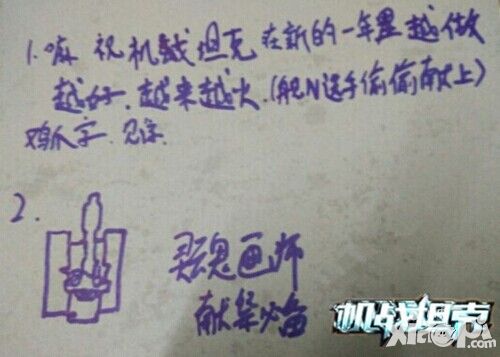 1.嘛 祝机战坦克在新的一年里越做
越好.越来越火.(舵N选手偷偷献上)
鸡爪字.见谅.
2.
灵魂画师
献祭必备
机战坦克